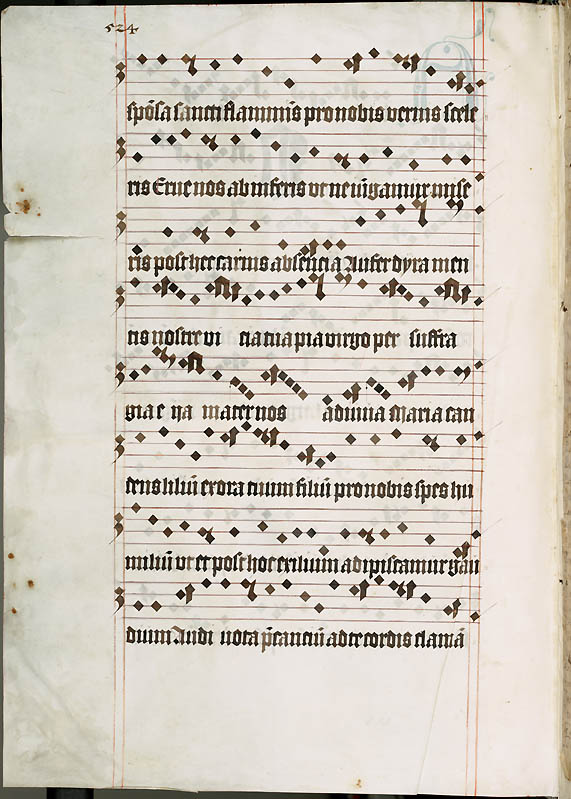 524
spōsa sancti flaminis pro nobis vermis scele
ris Erue nos ab inferis vt ne iūgamur mise
ris post hec carnis absencia Aufer dyra men
tis nostre vi cia tu pia virgo per suffra
gia e ya mater nos adiuua Maria can
dens liliū exora tuum filiū pro nobis spes hu
miliū vt et post hoc exilium adipiscamur gau
dium Audi vota p̄cantiū ad te cordis clamā